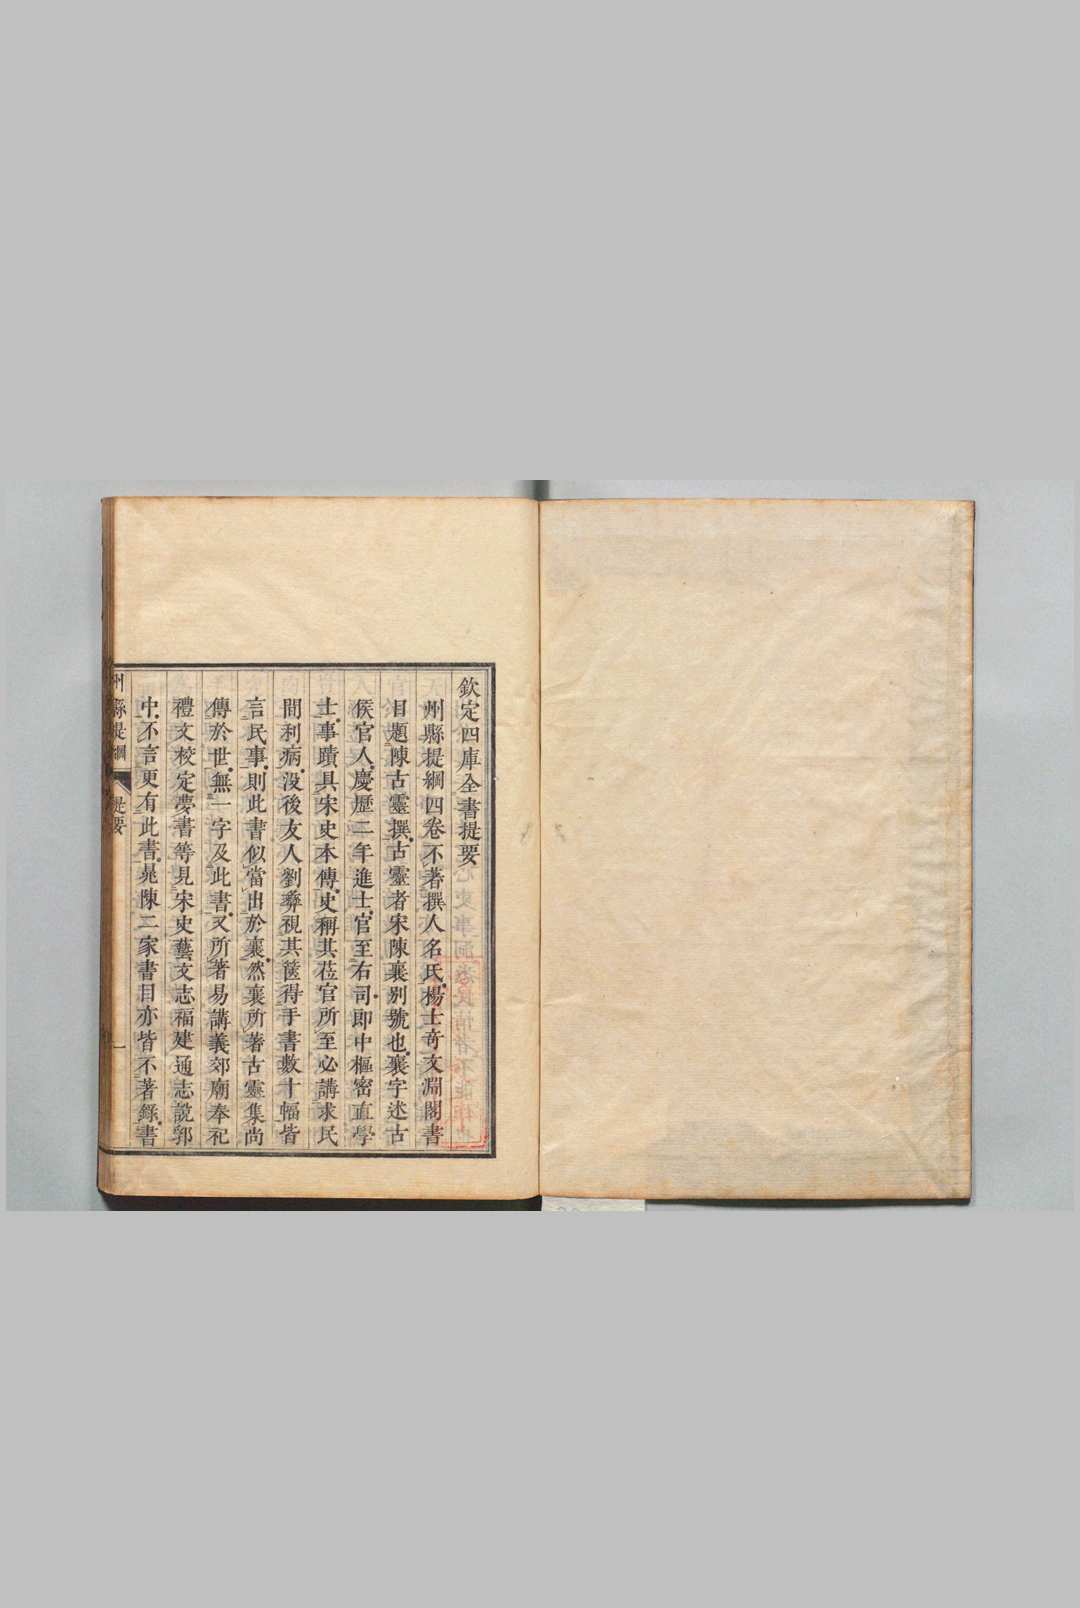 欽定四庫全書提要
州縣提綱四卷不著撰人名氏楊士奇文淵閣書
目題陳古靈撰古靈者宋陳襄别號也襄字述古
侯官人慶歷二年進士官至右司即中樞密直學
士事蹟具宋史本傳史稱其莅官所至必講求民
間利病没後友人劉彝視其篋得手書數十幅皆
言民事則此書似當出於襄然襄所著古靈集尚
傳於世無一字及此書又所著易講義郊廟奉祀
禮文校定夢書等見宋史藝文志福建通志説郛
中不言更有此書晁陳二家書目亦皆不著錄書
州縣提綱
提要
一